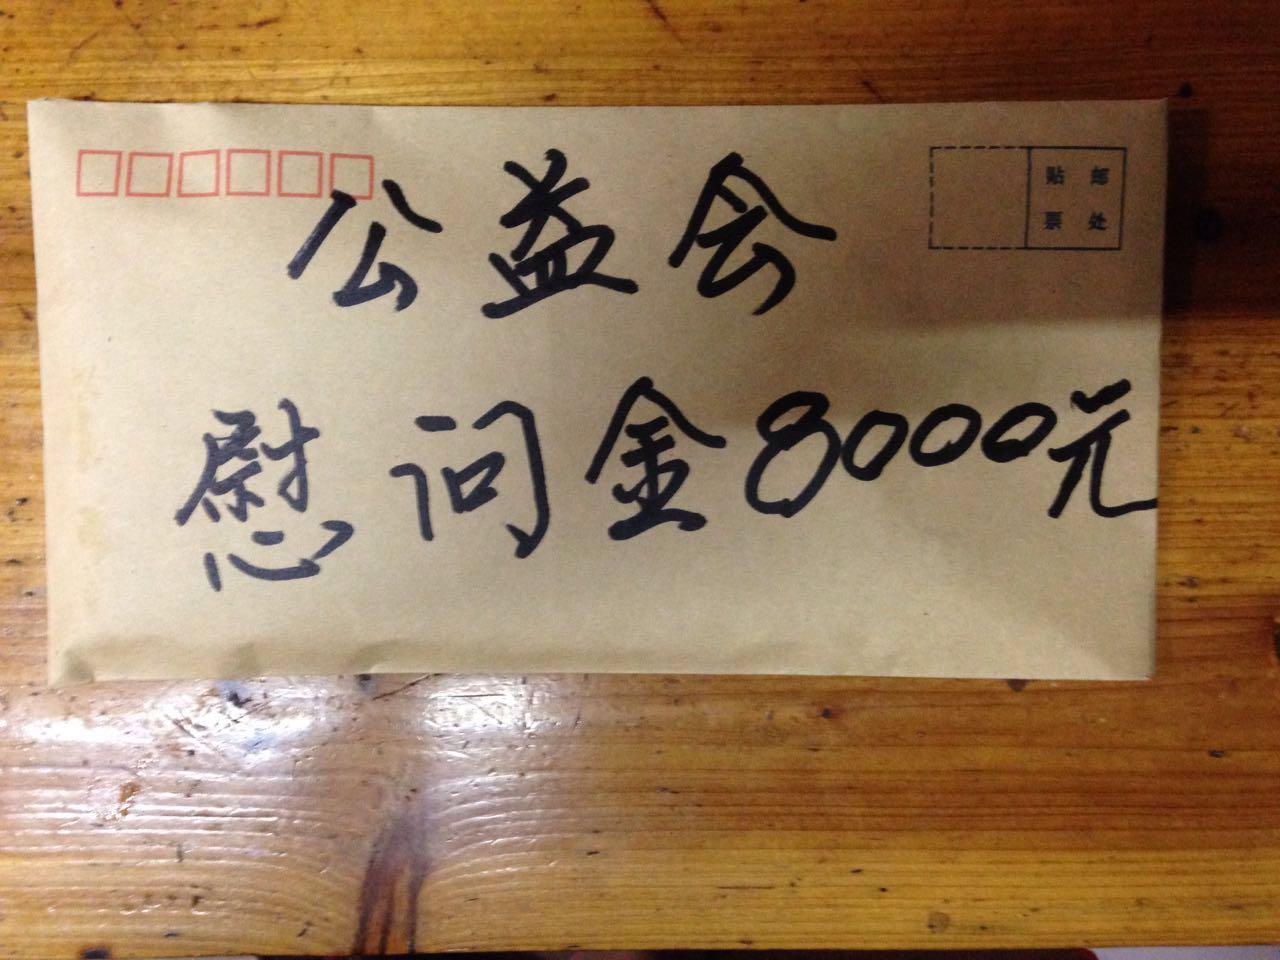 公益会
贴 邮
票 处
慰问金8000元